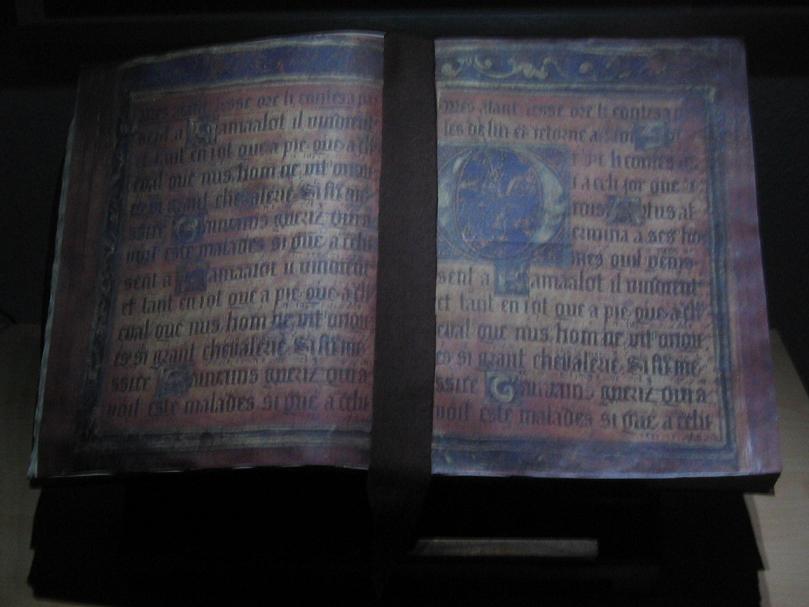 ores atant tesse ore li contes a par
sent a Kamaalot il vindrent
et tant en iot que a pie que a ch
eval que nus hom ne vit onqu
es si grant chevalerie Si fu me
ssire Gauvains gueriz qui a
voit este malades si que a celu
sent a Kamaalot il vindrent
et tant en iot que a pie que a ch
eval que nus hom ne vit onqu
es si grant chevalerie Si fu me
ssire Gauvains gueriz qui a
voit este malades si que a celu
ores atant tesse ore li contes a p
les de lui et retorne a
li contes
a celi jor que
rois Artus
a ses ho
mes quil
sent a Kamaalot il vindrent
et tant en iot que a pie que a ch
eval que nus hom ne vit onqu
es si grant chevalerie Si fu me
ssire Gauvains gueriz qui a
voit este malades si que a celu